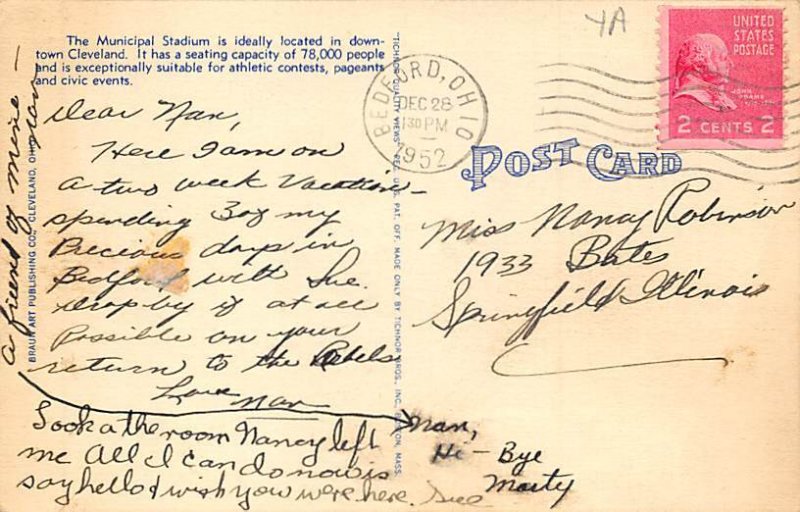 The Municipal Stadium is ideally located in down-
town Cleveland. It has a seating capacity of 78,000 people
and is exceptionally suitable for athletic contests, pageants
and civic events.
Dear Nan,
Here I am on
a two week Vacation -
spending 3 of my
Precious days in
Bedford with Sue.
drop by if at all
Possible on your
return to the Rebels
Love
Nan
Look at the room Nancy left
me All I can do now is
say hello & wish you were here. Sue
a friend of mine -
BRAUN ART PUBLISHING CO., CLEVELAND, OHIO
TICHNOR QUALITY VIEWS REG. U.S. PAT. OFF. MADE ONLY BY TICHNOR BROS., INC., BOSTON, MASS.
Nan,
Hi - Bye
Marty
YA
BEDFORD, OHIO
DEC 28
1 30 PM
1952
UNITED
STATES
POSTAGE
JOHN
ADAMS
2 CENTS 2
POST CARD
Miss Nancy Robinson
1933 Bates
Springfield Illinois